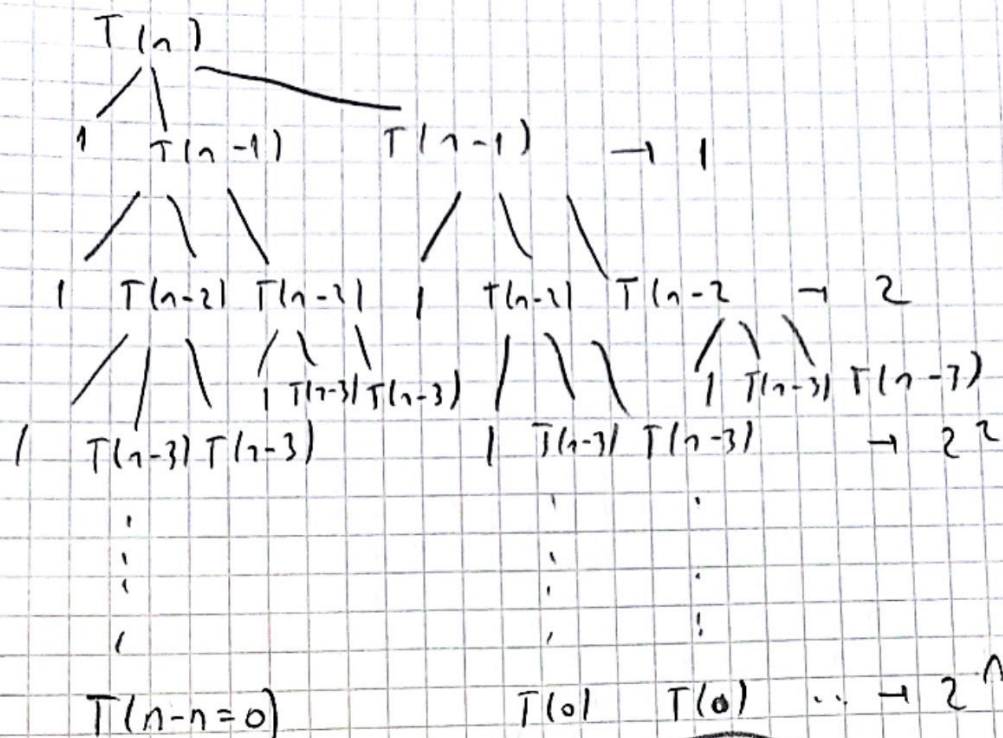 T(n)
1 T(n-1) T(n-1) → 1
1 T(n-2) T(n-2) 1 T(n-2) T(n-2 → 2
1 T(n-3) T(n-3) 1 T(n-3) T(n-3)
1 T(n-3) T(n-3) 1 T(n-3) T(n-3) → 2²
T(n-n=0) T(0) T(0) .. → 2ⁿ